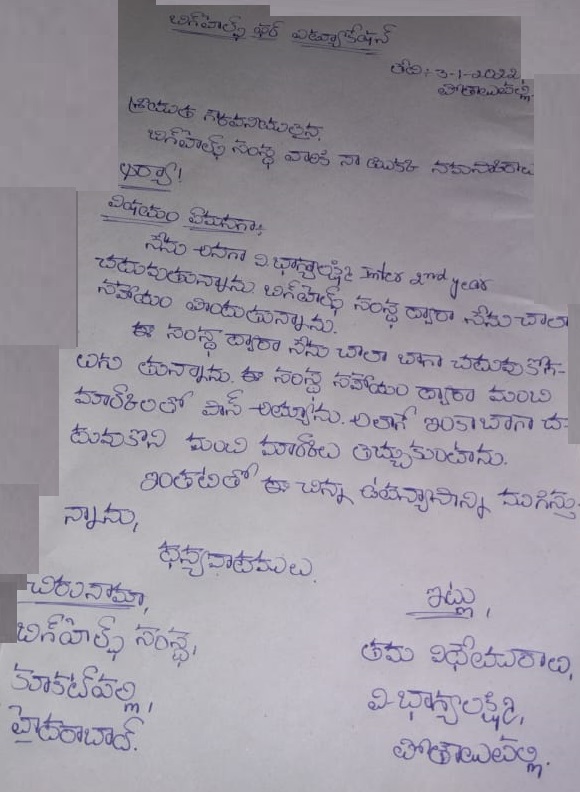 బిగ్‌హెల్ప్ ఫర్ ఎడ్యుకేషన్
తేది: 3-1-2022,
పోతాయిపల్లి.
శ్రీయుత గౌరవనీయులైన,
బిగ్‌హెల్ప్ సంస్థ వారికి నా యొక్క నమస్కారాలు
అయ్యా!
విషయం ఏమనగా:
నేను అనగా వి.భాగ్యలక్ష్మి Inter 2nd year
చదువుతున్నాను బిగ్‌హెల్ప్ సంస్థ ద్వారా నేను చాలా
సహాయం పొందుతున్నాను.
ఈ సంస్థ ద్వారా నేను చాలా బాగా చదువుకొగ-
లుగు తున్నాను. ఈ సంస్థ సహాయం ద్వారా మంచి
మార్కులతో పాస్ అయ్యాను. అలాగే ఇంకా బాగా చ-
దువుకొని మంచి మార్కులు తెచ్చుకుంటాను.
ఇంతటితో ఈ చిన్న ఉపన్యాసాన్ని ముగిస్తు-
న్నాను,
ధన్యవాదములు.
చిరునామా,
బిగ్‌హెల్ప్ సంస్థ,
కూకట్‌పల్లి,
హైదరాబాద్.
ఇట్లు,
తమ విధేయురాలు,
వి-భాగ్యలక్ష్మి,
పోతాయిపల్లి.